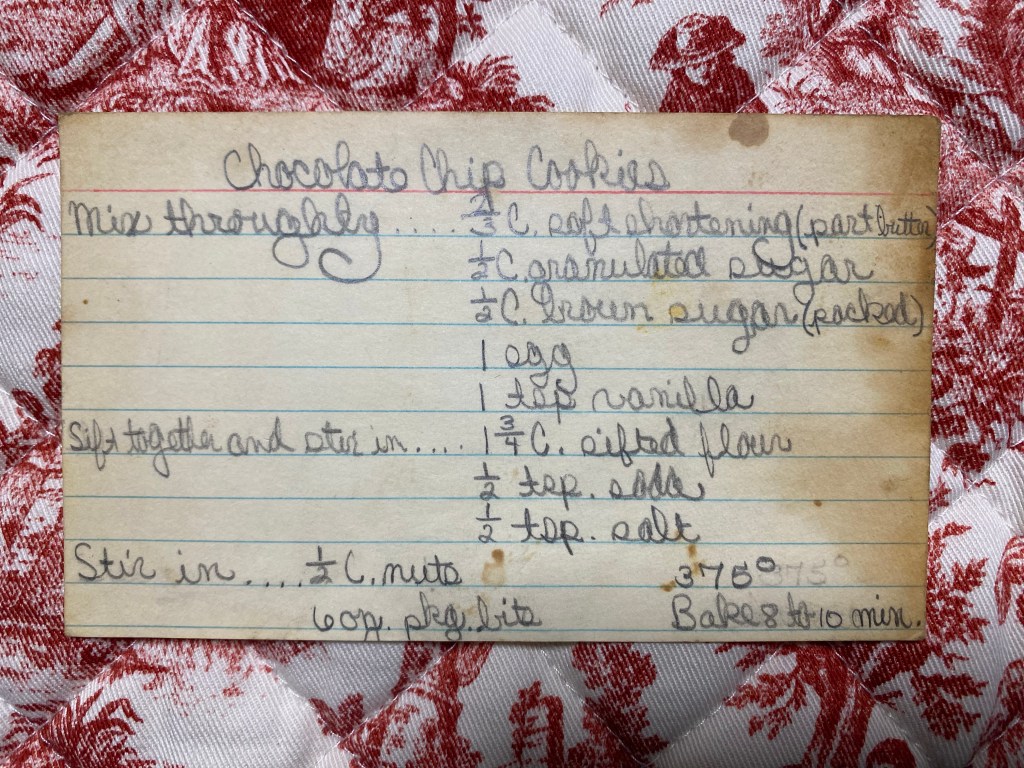 Chocolate Chip Cookies
Mix throughly..... 2/3 C. soft shortening (part butter)
1/2 C. granulated sugar
1/2 C. brown sugar (packed)
1 egg
1 tsp vanilla
Sift together and stir in.... 1 3/4 C. sifted flour
1/2 tsp. soda
1/2 tsp. salt
Stir in.... 1/2 C. nuts 375°
6 oz. pkg. bits Bake 8 to 10 min.